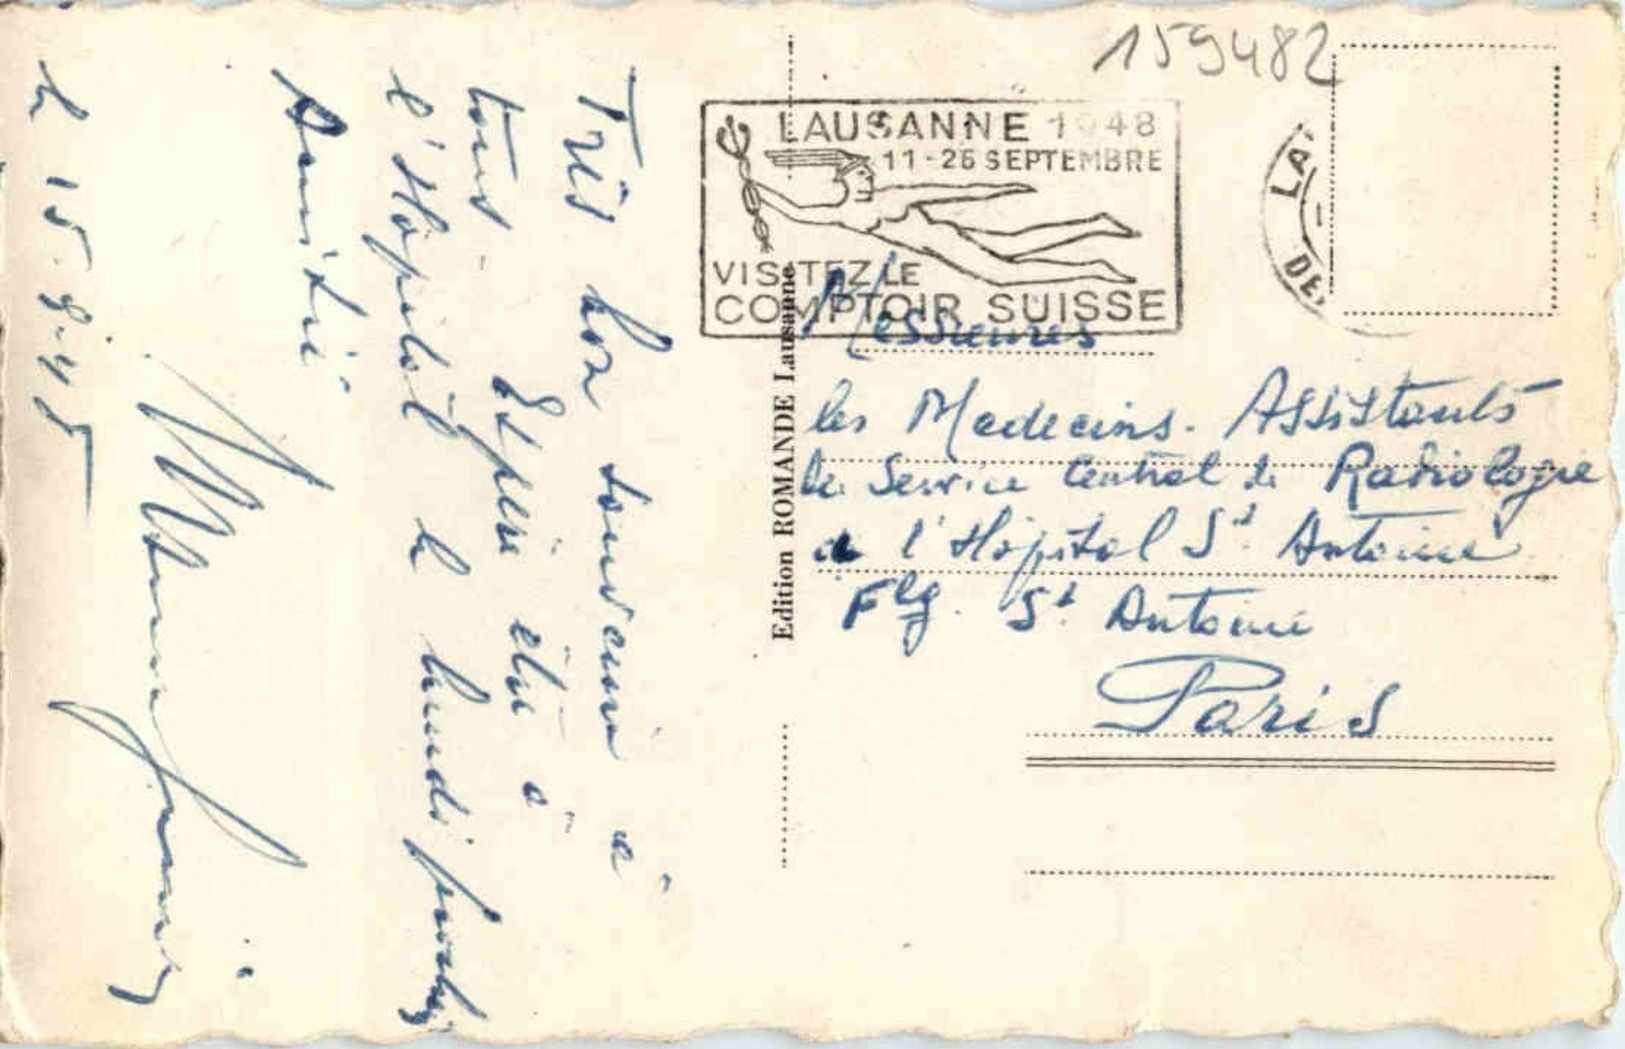 Très bon souvenir à
tous - Espère être à
l'Hôpital le lundi prochain
Amitié
le 15.9.48
159482
LAUSANNE 1948
11-26 SEPTEMBRE
VISITEZ LE
COMPTOIR SUISSE
LA
DE
Edition ROMANDE Lausanne
Messieurs
les Medecins. Assistants
de Service Central de Radiologie
de l'Hôpital St. Antoine
Fbg. St Antoine
Paris